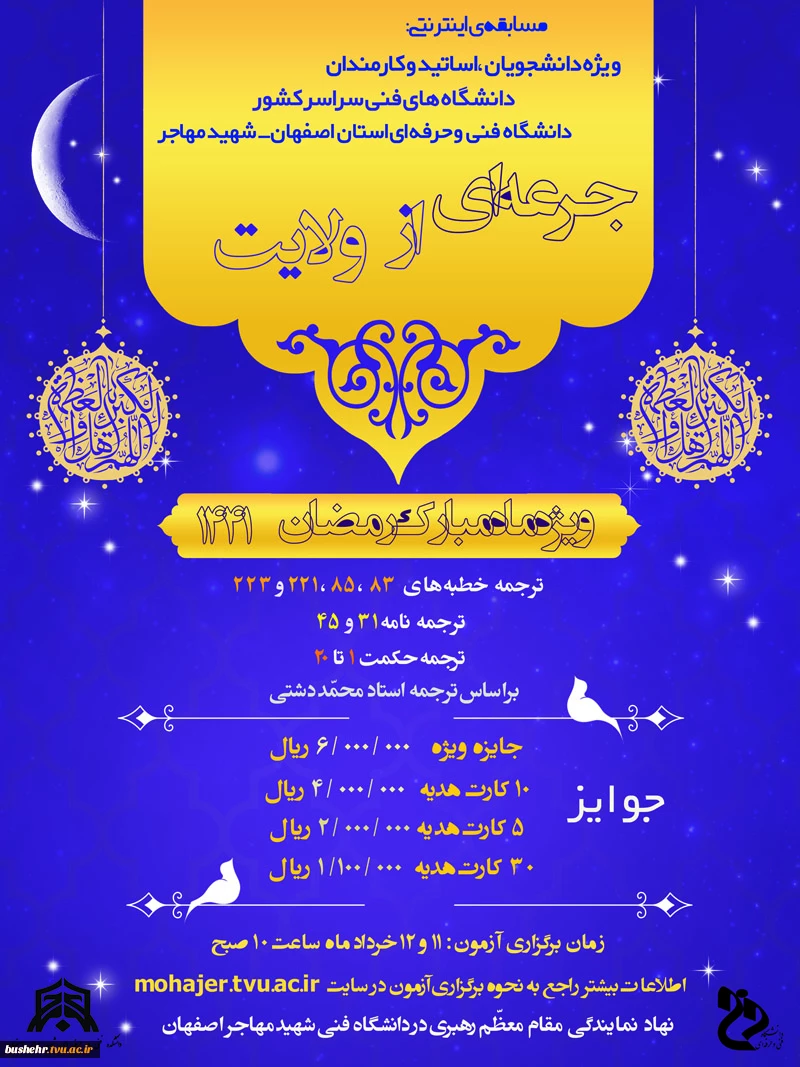 مسابقه‌ی اینترنتی:
ویژه دانشجویان ،اساتید و کارمندان
دانشگاه های فنی سراسر کشور
دانشگاه فنی و حرفه ای استان اصفهان_ شهید مهاجر
جرعه‌ای از ولایت
ویژه ماه مبارک رمضان ۱۴۴۱
ترجمه خطبه های ۸۳ ،۸۵ ،۲۲۱ و ۲۲۳
ترجمه نامه ۳۱ و ۴۵
ترجمه حکمت ۱ تا ۲۰
براساس ترجمه استاد محمّد دشتی
جوایز
جایزه ویژه ۶/۰۰۰/۰۰۰ ریال
۱۰ کارت هدیه ۴/۰۰۰/۰۰۰ ریال
۵ کارت هدیه ۲/۰۰۰/۰۰۰ ریال
۳۰ کارت هدیه ۱/۱۰۰/۰۰۰ ریال
زمان برگزاری آزمون : ۱۱ و ۱۲ خرداد ماه ساعت ۱۰ صبح
اطلاعات بیشتر راجع به نحوه برگزاری آزمون در سایت mohajer.tvu.ac.ir
نهاد نمایندگی مقام معظّم رهبری در دانشگاه فنی شهید مهاجر اصفهان
دانشگاه
فنی و حرفه‌ای
bushehr.tvu.ac.ir